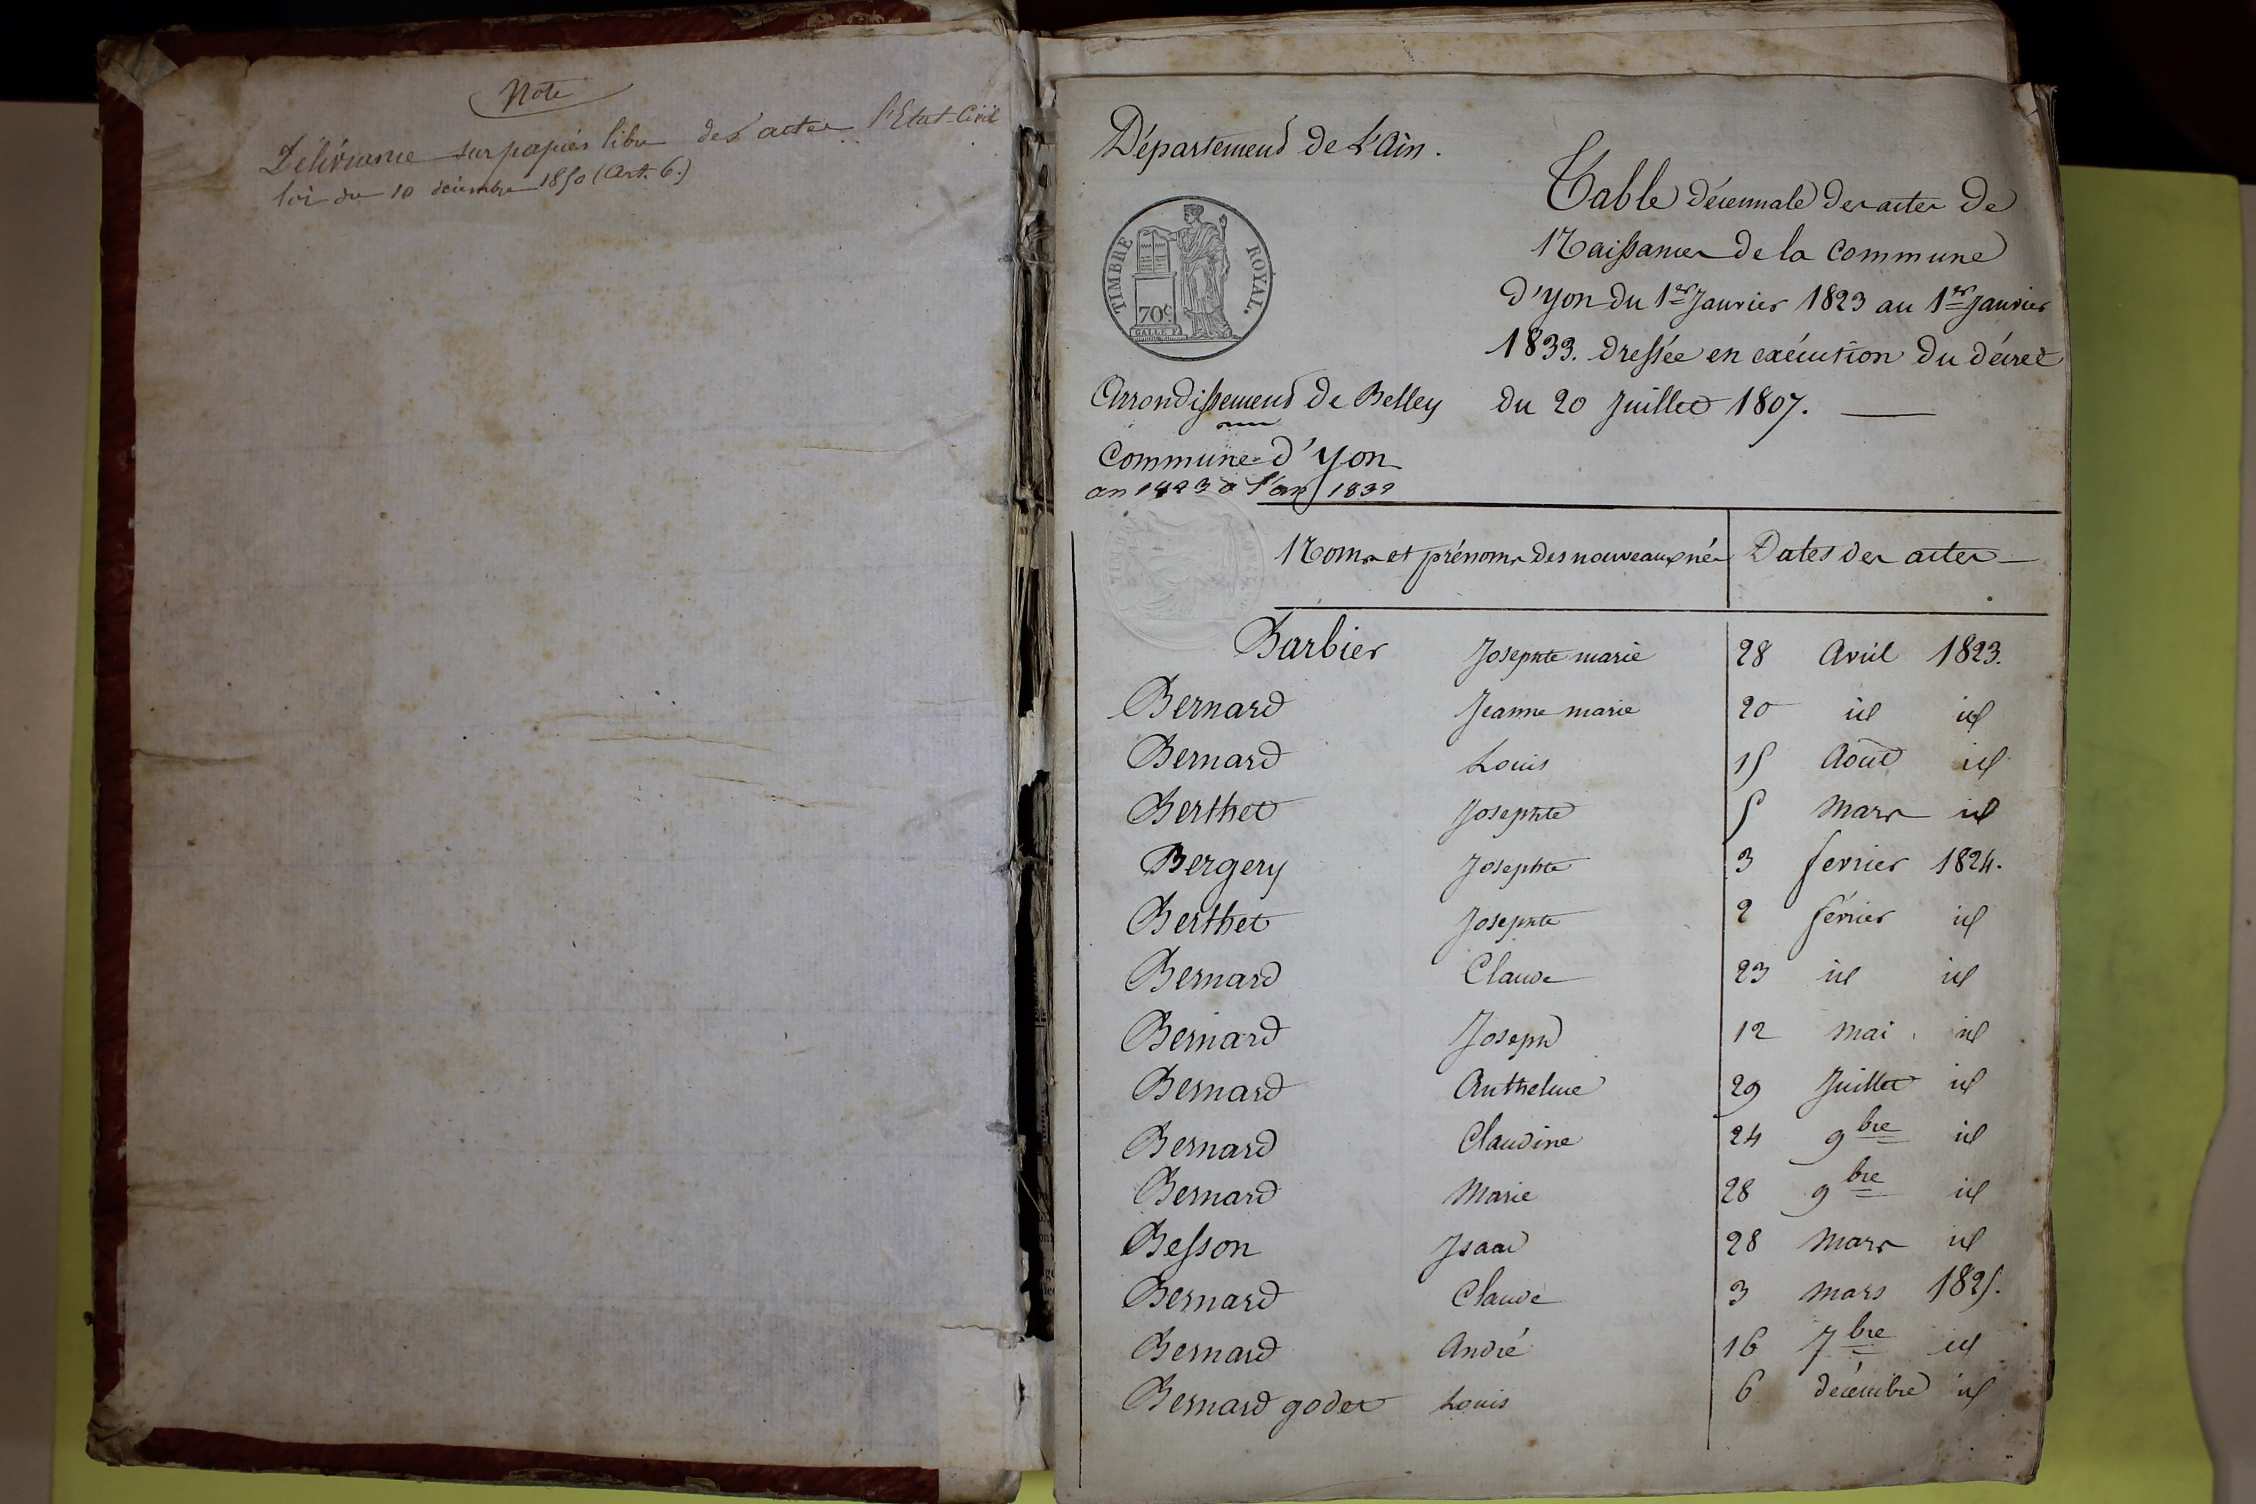 Note
Délivrance sur papier libre des actes l'Etat-Civil
loi du 10 décembre 1850 (Art. 6.)
Département de L'Ain.
TIMBRE ROYAL.
70c
Arrondissement de Belley
Commune d'yon
an 1823 à l'an 1832
Table décennale des actes de
Naissances de la commune
d'yon du 1er Janvier 1823 au 1er Janvier
1833. dressée en exécution du décret
du 20 Juillet 1807.
Noms et prénoms des nouveaux nés Dates des actes
Barbier Josephte marie 28 Avril 1823.
Bernard Jeanne marie 20 id id
Bernard Louis 15 Août id
Berthet Josephte 5 Mars id
Bergery Josephte 3 fevrier 1824.
Berthet Josephte 2 février id
Bernard Claude 23 id id
Bernard Joseph 12 Mai id
Bernard Anthelme 29 Juillet id
Bernard Claudine 24 9bre id
Bernard Marie 28 9bre id
Besson Isaac 28 Mars id
Bernard Claude 3 Mars 1825.
Bernard André 16 7bre id
Bernard godet Louis 6 décembre id